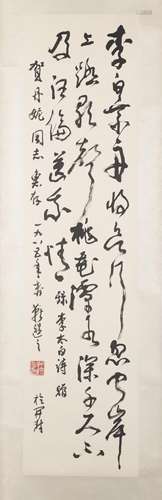 李白乘舟将欲行忽闻岸
上踏歌声桃花潭水深千尺不
及汪伦送我情 録李太白诗赠
贺丹妮同志惠存 一九八五年春 于开封